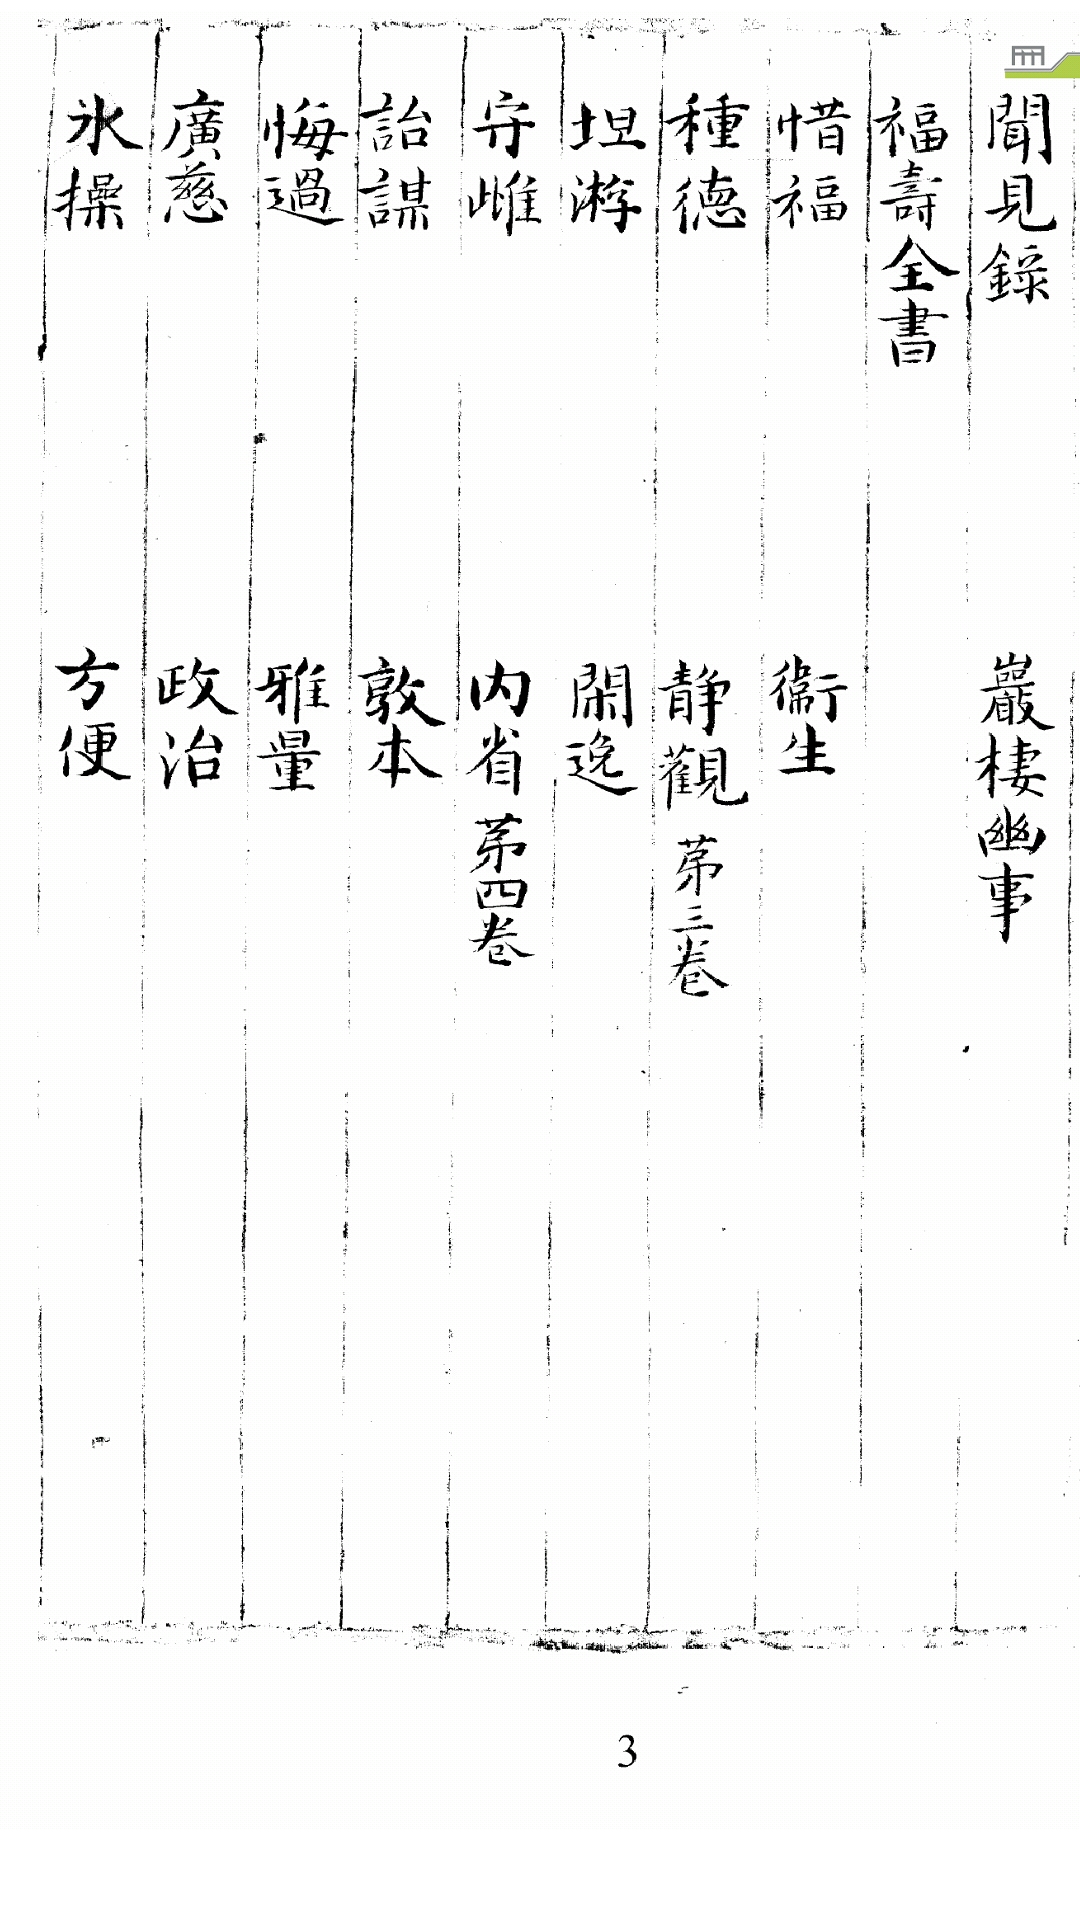 聞見録 巖棲幽事
福壽全書
惜福 衛生
種德 静觀 苐三卷
坦游 閑逸
守雌 内省 苐四卷
詒謀 敦本
悔過 雅量
廣慈 政治
氷操 方便
3